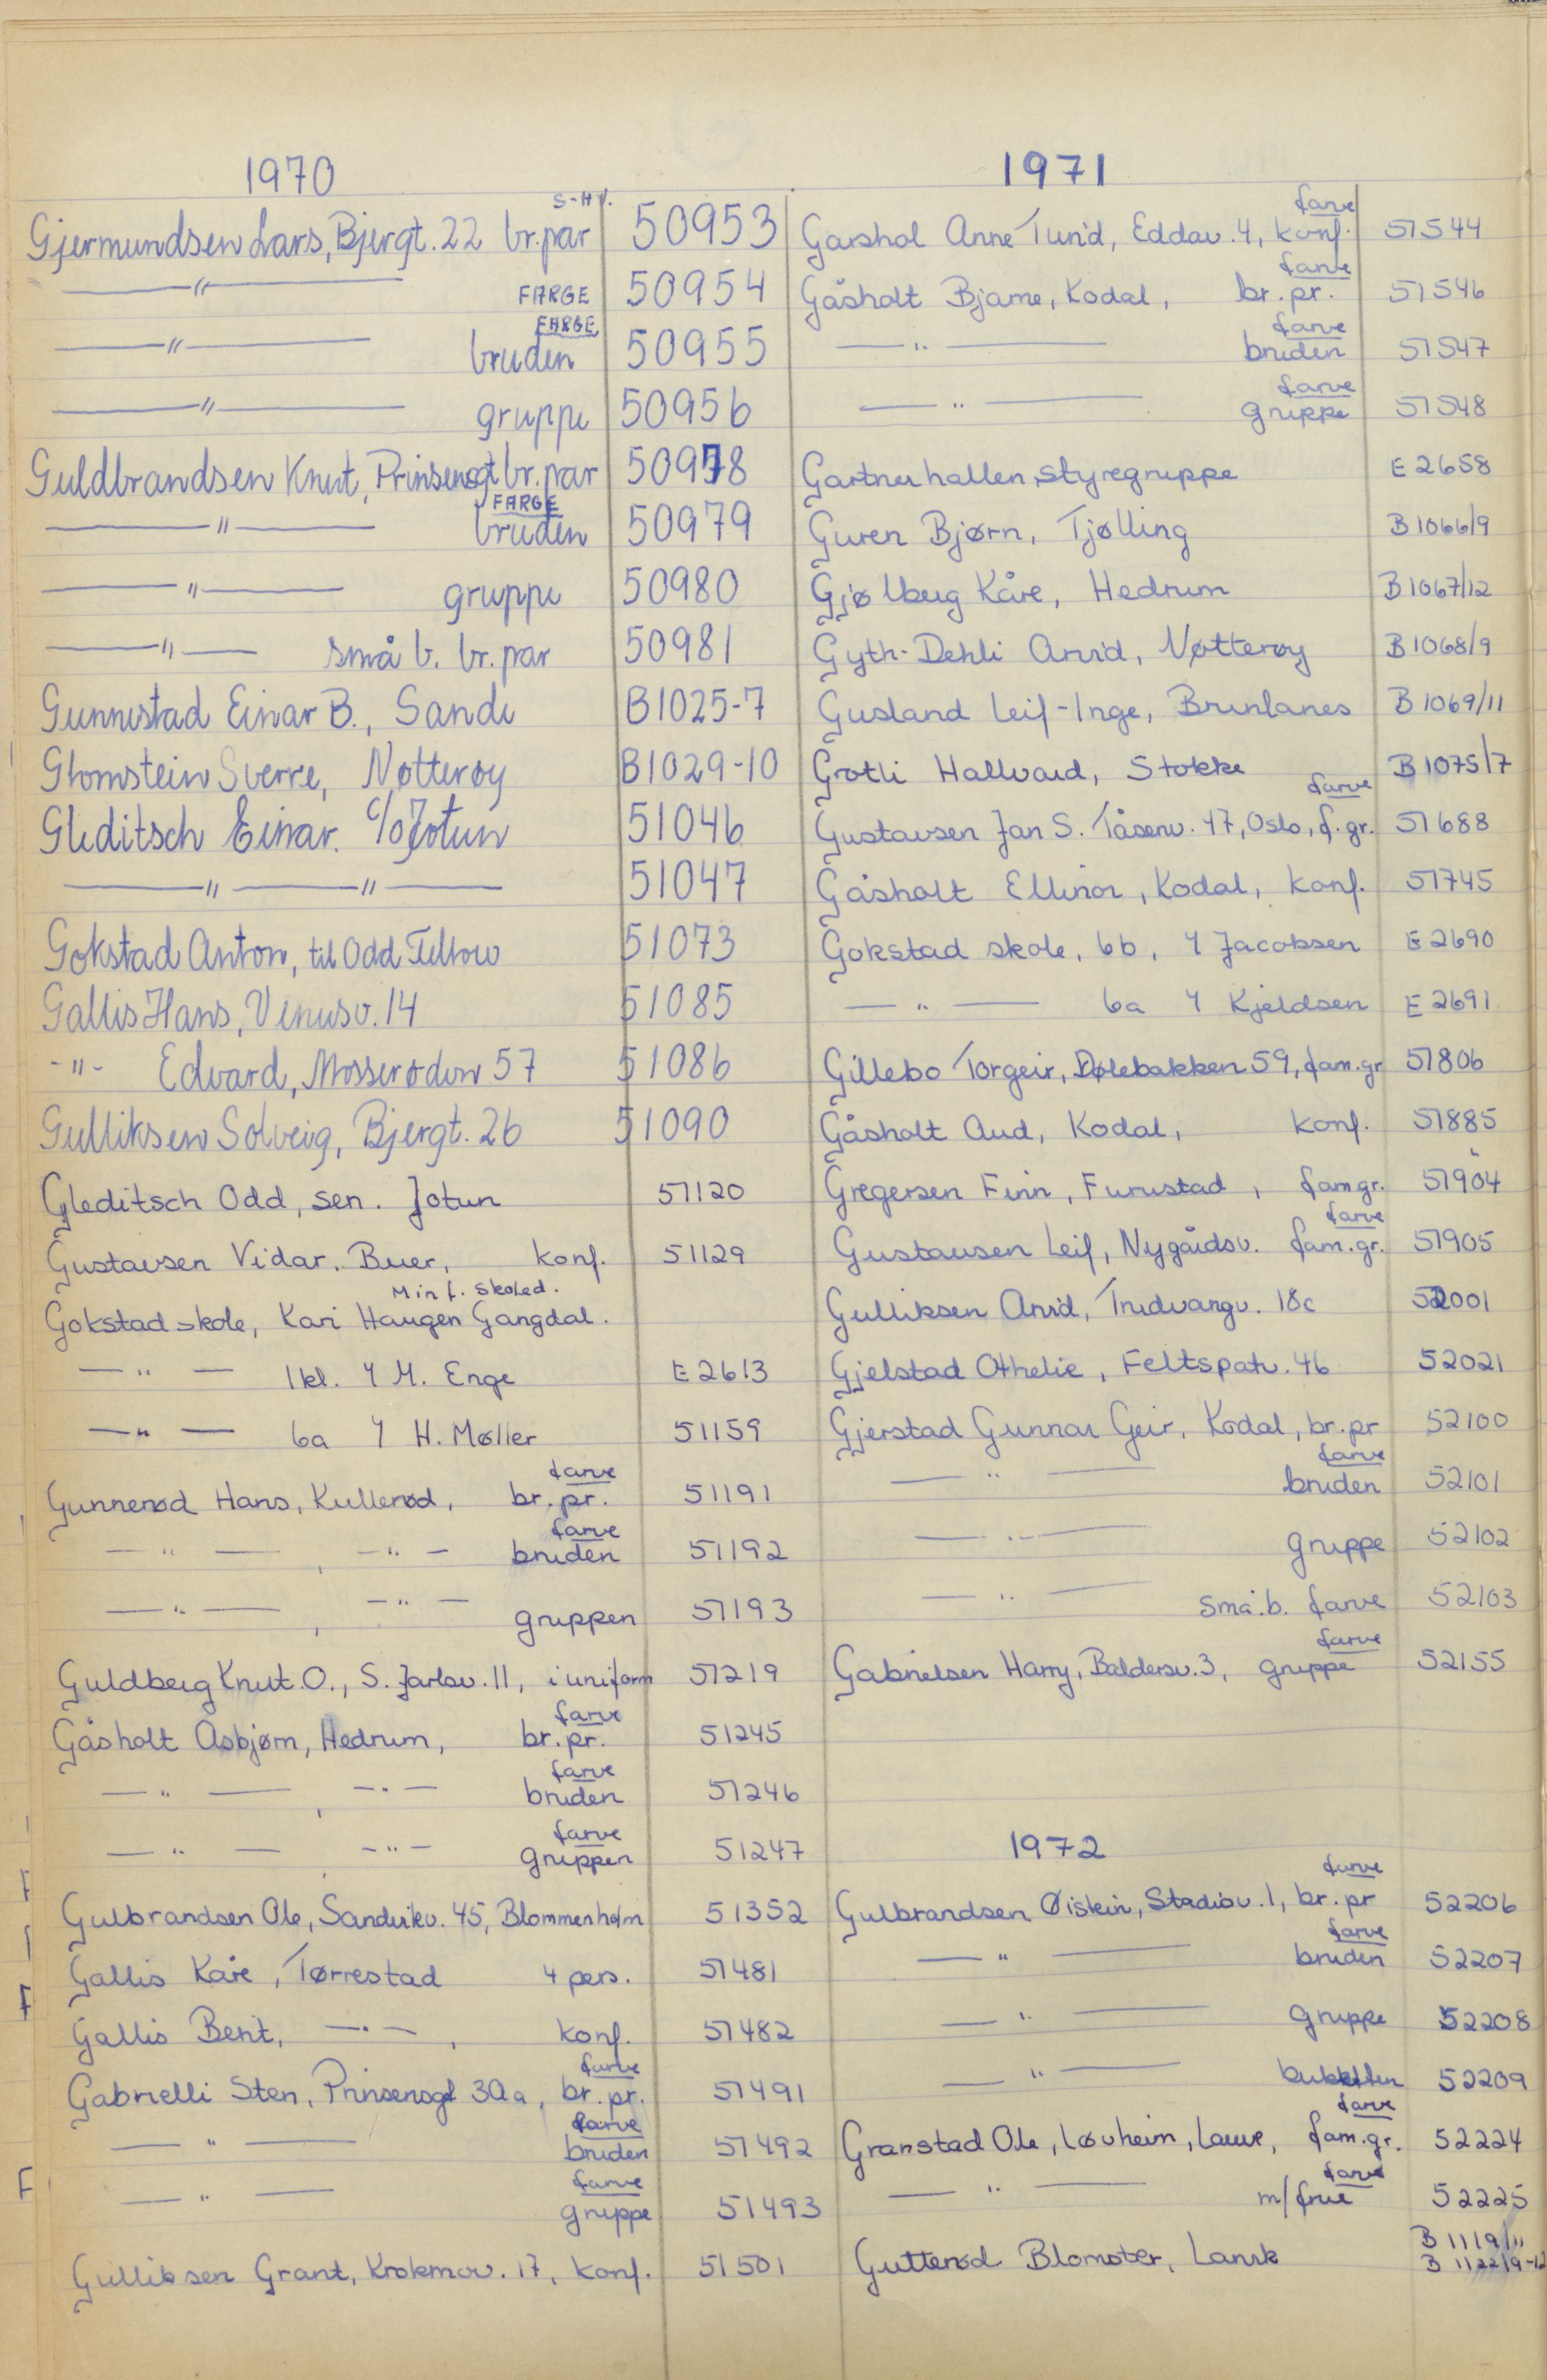 1970
S-HV.
Gjermundsen Lars, Bjergt. 22 br.par 50953
—〃— FARGE 50954
FARGE
—〃— bruden 50955
—〃— gruppe 50956
Guldbrandsen Knut, Prinsensgt br.par 50978
FARGE
—〃— bruden 50979
—〃— gruppe 50980
—〃— små b. br.par 50981
Gunnestad Einar B., Sande B1025-7
Glomstein Sverre, Nøtterøy B1029-10
Gleditsch Einar. c/o Jotun 51046
—〃—〃— 51047
Gokstad Anton, til Odd Fellow 51073
Gallis Hans, Venusv. 14 51085
-〃- Edvard, Mosserødvn 57 51086
Gulliksen Solveig, Bjergt. 26 51090
Gleditsch Odd, sen. Jotun 51120
Gustavsen Vidar, Buer, konf. 51129
Min f. skoled.
Gokstad skole, Kari Haugen Gangdal.
—〃— 1kl. Y M. Enge E2613
—〃— 6a Y H. Møller 51159
farve
Gunnerød Hans, Kullerød, br.pr. 51191
farve
—〃—, —〃— bruden 51192
—〃—, —〃— gruppen 51193
Guldberg Knut. O., S. Jarlsv. 11, i uniform 51219
farve
Gåsholt Asbjørn, Hedrum, br.pr. 51245
farve
—〃—, —〃— bruden 51246
farve
—〃—, —〃— gruppen 51247
Gulbrandsen Ole, Sandvikv. 45, Blommenholm 51352
Gallis Kåre, Tørrestad 4 pers. 51481
Gallis Berit, —〃—, konf. 51482
farve
Gabrielli Sten, Prinsensgt 30a, br.pr. 51491
farve
—〃— bruden 51492
farve
—〃— gruppe 51493
Gulliksen Grant, Krokmov. 17, konf. 51501
1971
farve
Garshol Anne Turid, Eddav. 4, konf. 51544
farve
Gåsholt Bjarne, Kodal, br.pr. 51546
farve
—〃— bruden 51547
farve
—〃— gruppe 51548
Gartnerhallen, styregruppe E2658
Guren Bjørn, Tjølling B1066/9
Gjølberg Kåre, Hedrum B1067/12
Gyth-Dehli Arvid, Nøtterøy B1068/9
Gusland Leif-Inge, Brunlanes B1069/11
Grotli Hallvard, Stokke B1075/7
farve
Gustavsen Jan S. Tåsenv. 47, Oslo, f.gr. 51688
Gåsholt Ellinor, Kodal, konf. 51745
Gokstad skole, 6b, Y Jacobsen E2690
—〃— 6a Y Kjeldsen E2691
Gillebo Torgeir, Dølebakken 59, fam.gr 51806
Gåsholt Aud, Kodal, konf. 51885
Gregersen Finn, Furustad, fam gr. 51904
farve
Gustavsen Leif, Nygårdsv. fam.gr. 51905
Gulliksen Arvid, Trudvangv. 18c 52001
Gjelstad Othelie, Feltspatv. 46 52021
Gjerstad Gunnar Geir, Kodal, br.pr 52100
farve
—〃— bruden 52101
—〃— gruppe 52102
—〃— små.b. farve 52103
farve
Gabrielsen Harry, Baldersv. 3, gruppe 52155
1972
farve
Gulbrandsen Øistein, Stadionv. 1, br.pr 52206
farve
—〃— bruden 52207
—〃— gruppe 52208
—〃— buketten 52209
farve
Granstad Ole, Løvheim, Lauve, fam.gr. 52224
farve
—〃— m/frue 52225
B 1119/11
Gutterød Blomster, Larvik B 1122/9-12